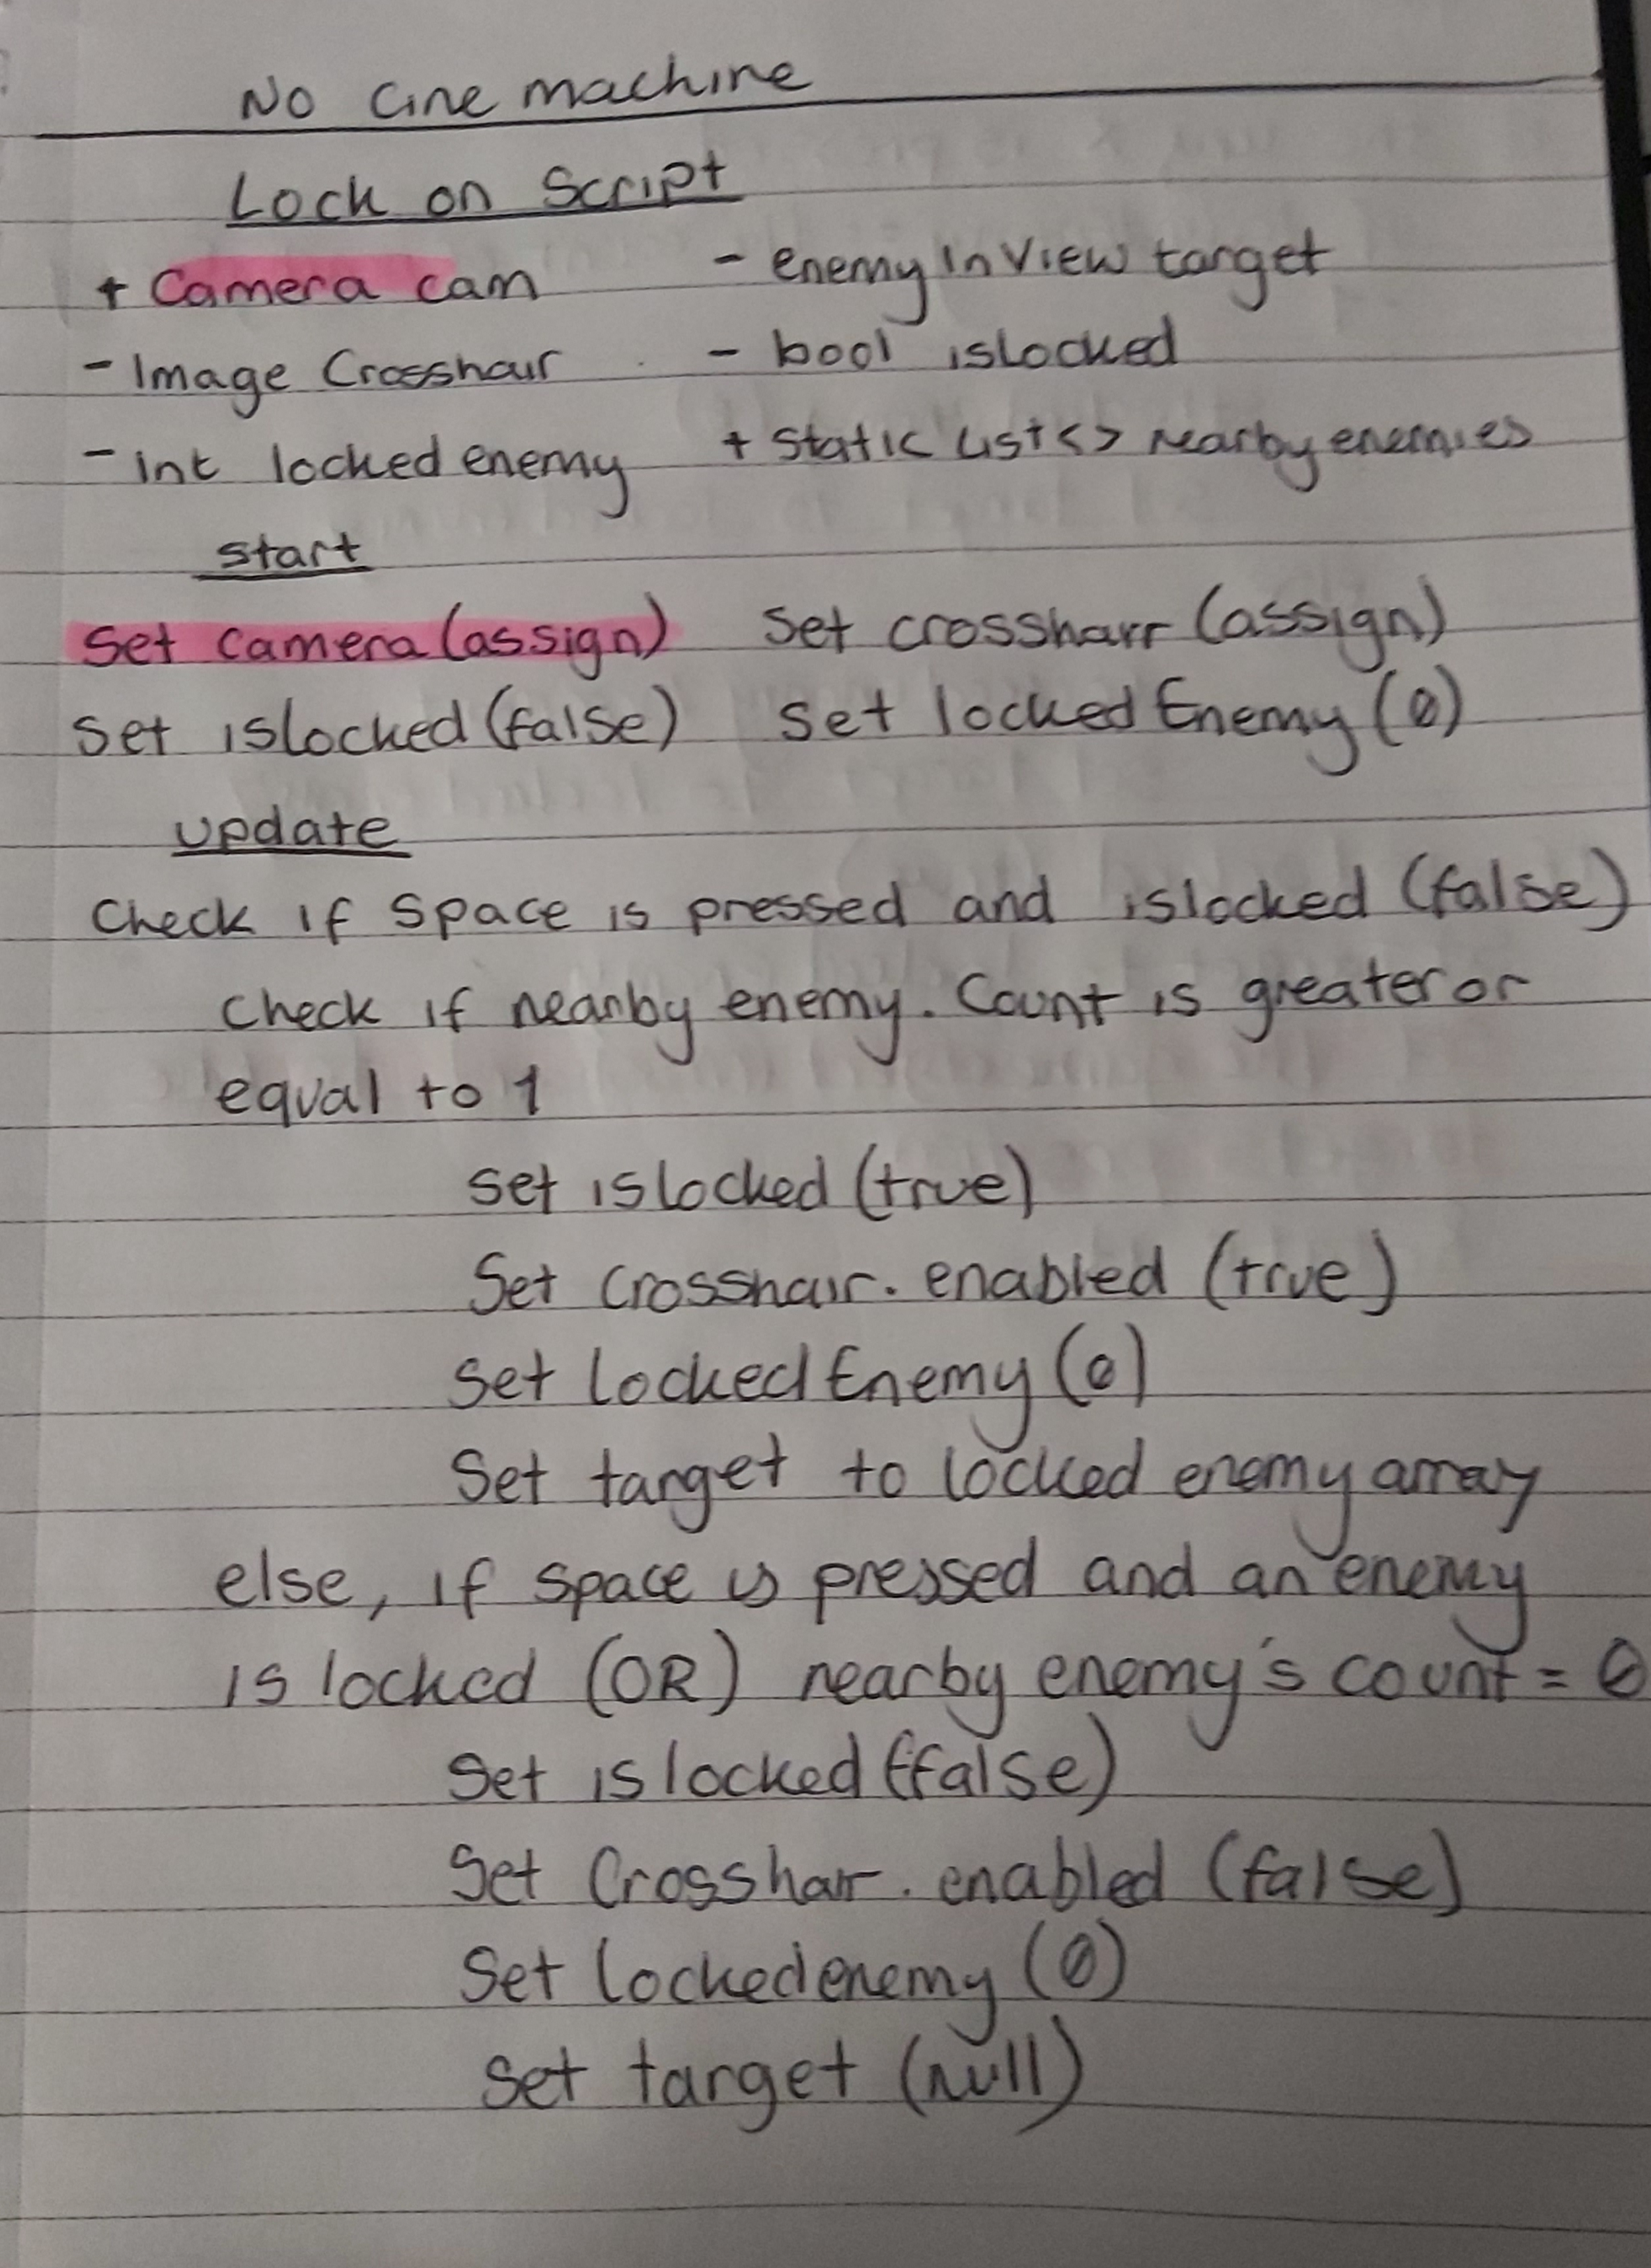 No Cine machine
Lock on Script
+ Camera cam - enemy In View target
- Image Crosshair - bool islocked
- int locked enemy + static List<> nearby enemies
start
Set camera (assign) Set crosshair (assign)
Set islocked (false) Set locked Enemy (0)
update
Check if space is pressed and islocked (false)
check if nearby enemy. Count is greater or
equal to 1
Set islocked (true)
Set crosshair. enabled (true)
Set Locked Enemy (0)
Set target to locked enemy array
else, if space is pressed and an enemy
is locked (OR) nearby enemy's count = 0
Set is locked (false)
Set Crosshair. enabled (false)
Set Lockedenemy (0)
Set target (null)